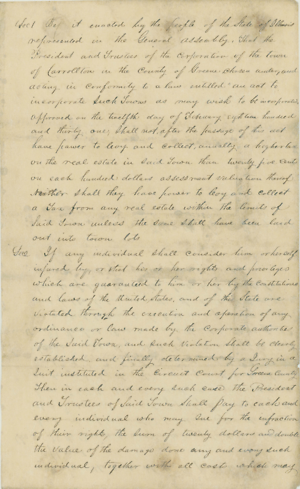 Sec 1 Be it enacted by the People of the State of Illinois
represented in the General Assembly, That the
President and Trustees of the Corporation of the town
of Carrollton in the County of Greene
acting in conformity to a law entitled "an act to
incorporate Such Towns as may wish to be incorporated
approved on the twelfth day of February eighteen hundred
and thirty one; Shall not after the passage of this act
have power to levy and collect, annually, a higher tax
on the real estate in Said Town than twenty five cents
on each hundred dollars assessment valuation thereof.
Neither shall they have power to levy and collect
a Tax from any real estate within the limits of
Said Town unless the same shall have been laid
out into town lots
Sec 2 If any individual shall consider him or herself
injured by, or that his or her rights and privileges
which are guaranteed to him or her by the Constitutions
and laws of the United States, and of this State are
violated through the execution and operation of any
ordinances or laws made by the Corporate authorities
of the Said Town, and such violation shall be clearly
established and finally determined by a Jury in a
Suit instituted in the Circuit Court for Greene County
Then in each and every such case the President
and Trustees of Said Town Shall pay to each and
every individual who may Sue for the infraction
of their rights, the Sum of twenty dollars and double
the value of the damage done any and every such
individual, together with all cost which may